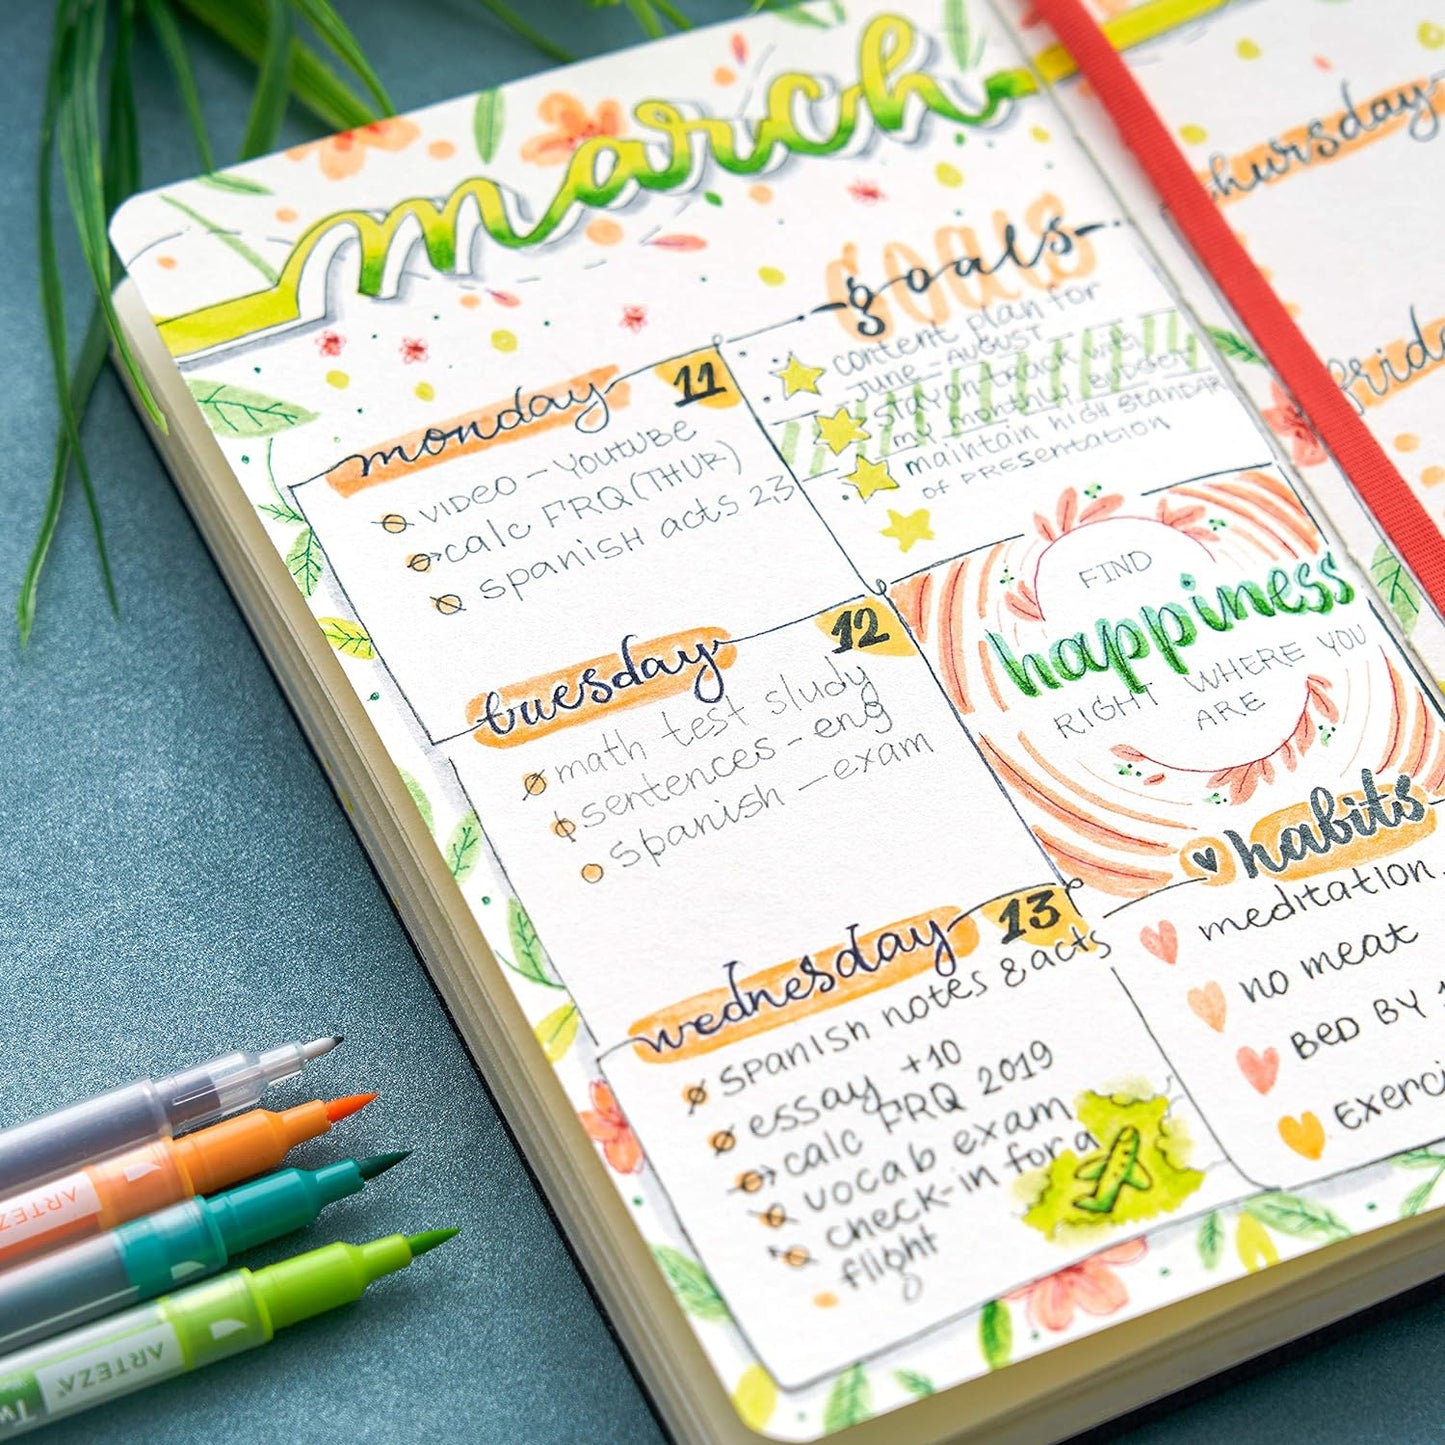 march
monday 11
VIDEO - YOUTUBE
calc FRQ (THUR)
spanish acts 2,3
tuesday 12
math test study
sentences - eng
spanish - exam
wednesday 13
spanish notes & acts
essay +10
calc FRQ 2019
vocab exam
check-in for a
flight
goals
content plan for
JUNE - AUGUST
stay on track with
my monthly BUDGET
maintain HIGH STANDAR
OF PRESENTATION
FIND
happiness
RIGHT WHERE YOU
ARE
habits
meditation
no meat
BED BY
Exerci
thursday
friday
ARTEZA
ARTEZA
Tw